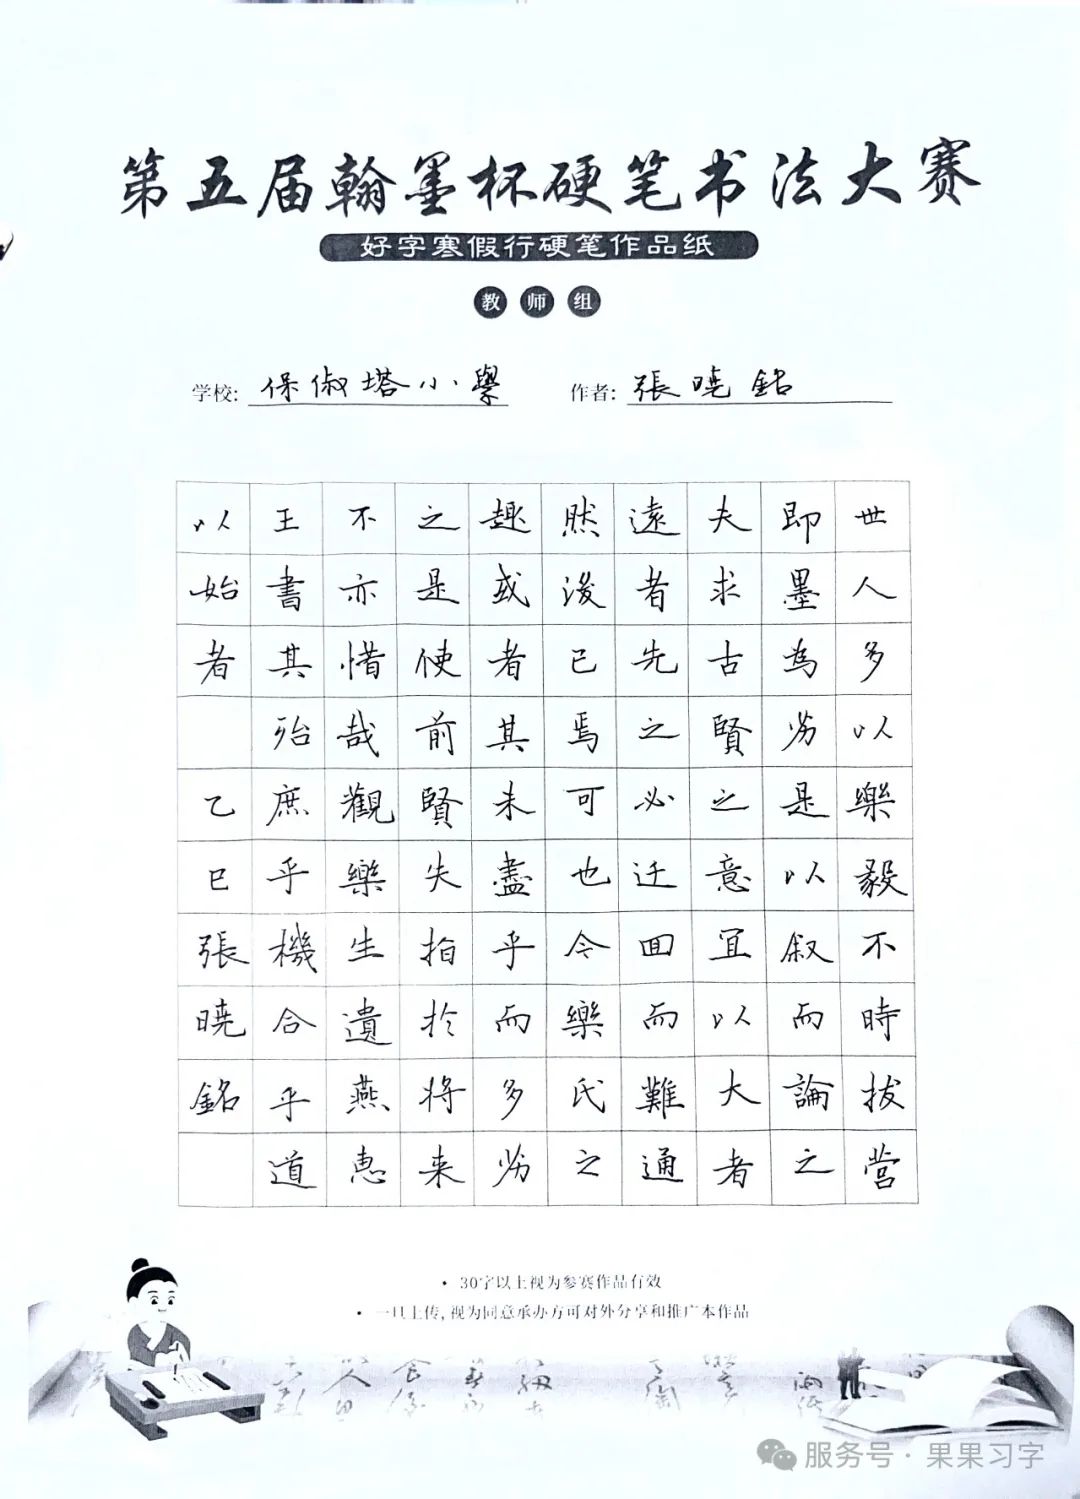 第五届翰墨杯硬笔书法大赛
好字寒假行硬笔作品纸
教师组
学校: 保俶塔小學 作者: 張曉銘
世人多以樂毅不時拔营
即墨為劣是以叙而論之
夫求古賢之意冝以大者
遠者先之必迂囬而難通
然後已焉可也今樂氏之
趣或者其未盡乎而多劣
之是使前賢失指於將来
不亦惜哉觀樂生遺燕惠
王書其殆庶乎機合乎道
以始者 乙巳張曉銘
• 30字以上视为参赛作品有效
• 一旦上传,视为同意承办方可对外分享和推广本作品
服务号·果果习字